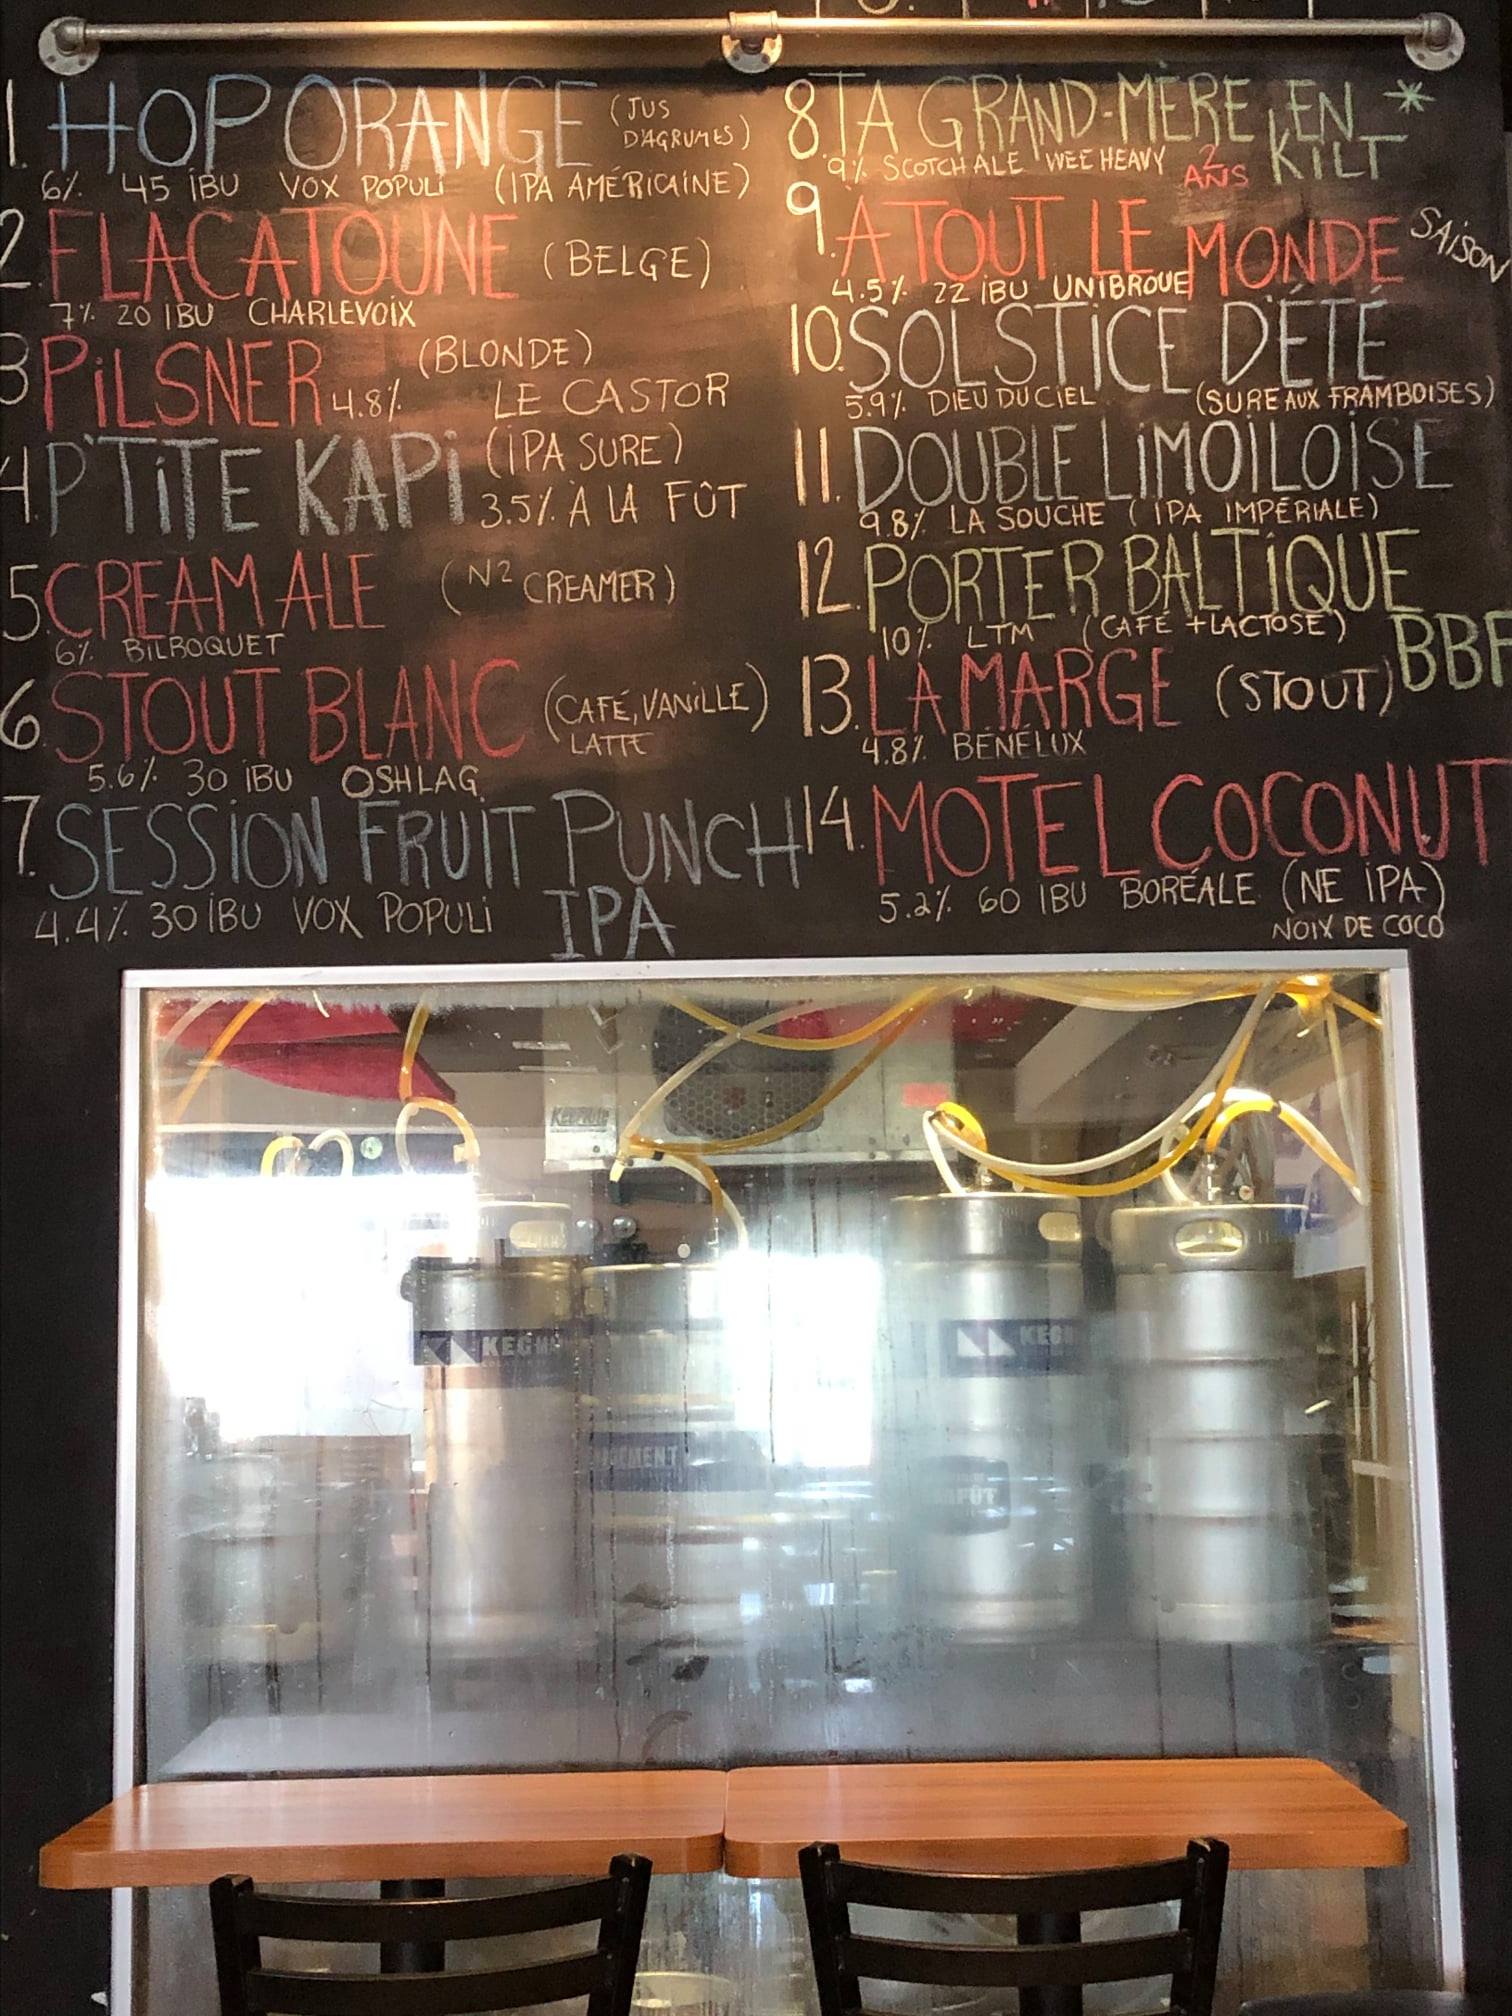 1. HOP ORANGE (JUS D'AGRUMES)
6% 45 IBU VOX POPULI (IPA AMÉRICAINE)
2. FLACATOUNE (BELGE)
7% 20 IBU CHARLEVOIX
3 PILSNER (BLONDE)
4.8% LE CASTOR
4. P'TITE KAPI (IPA SURE)
3.5% À LA FÛT
5 CREAM ALE (N2 CREAMER)
6% BILBOQUET
6. STOUT BLANC (CAFÉ, VANILLE)
LATTE
5.6% 30 IBU OSHLAG
7. SESSION FRUIT PUNCH
4.4% 30 IBU VOX POPULI IPA
8 TA GRAND-MÈRE EN *
KILT
9% SCOTCH ALE WEE HEAVY 2 ANS
9. À TOUT LE MONDE SAISON
4.5% 22 IBU UNIBROUE
10. SOLSTICE D'ÉTÉ
5.9% DIEU DU CIEL (SURE AUX FRAMBOISES)
11. DOUBLE LIMOILOISE
9.8% LA SOUCHE (IPA IMPÉRIALE)
12. PORTER BALTIQUE
10% LTM (CAFÉ + LACTOSE) BBF
13. LA MARGE (STOUT)
4.8% BÉNÉLUX
14. MOTEL COCONUT
5.2% 60 IBU BORÉALE (NE IPA)
NOIX DE COCO
KeepRite